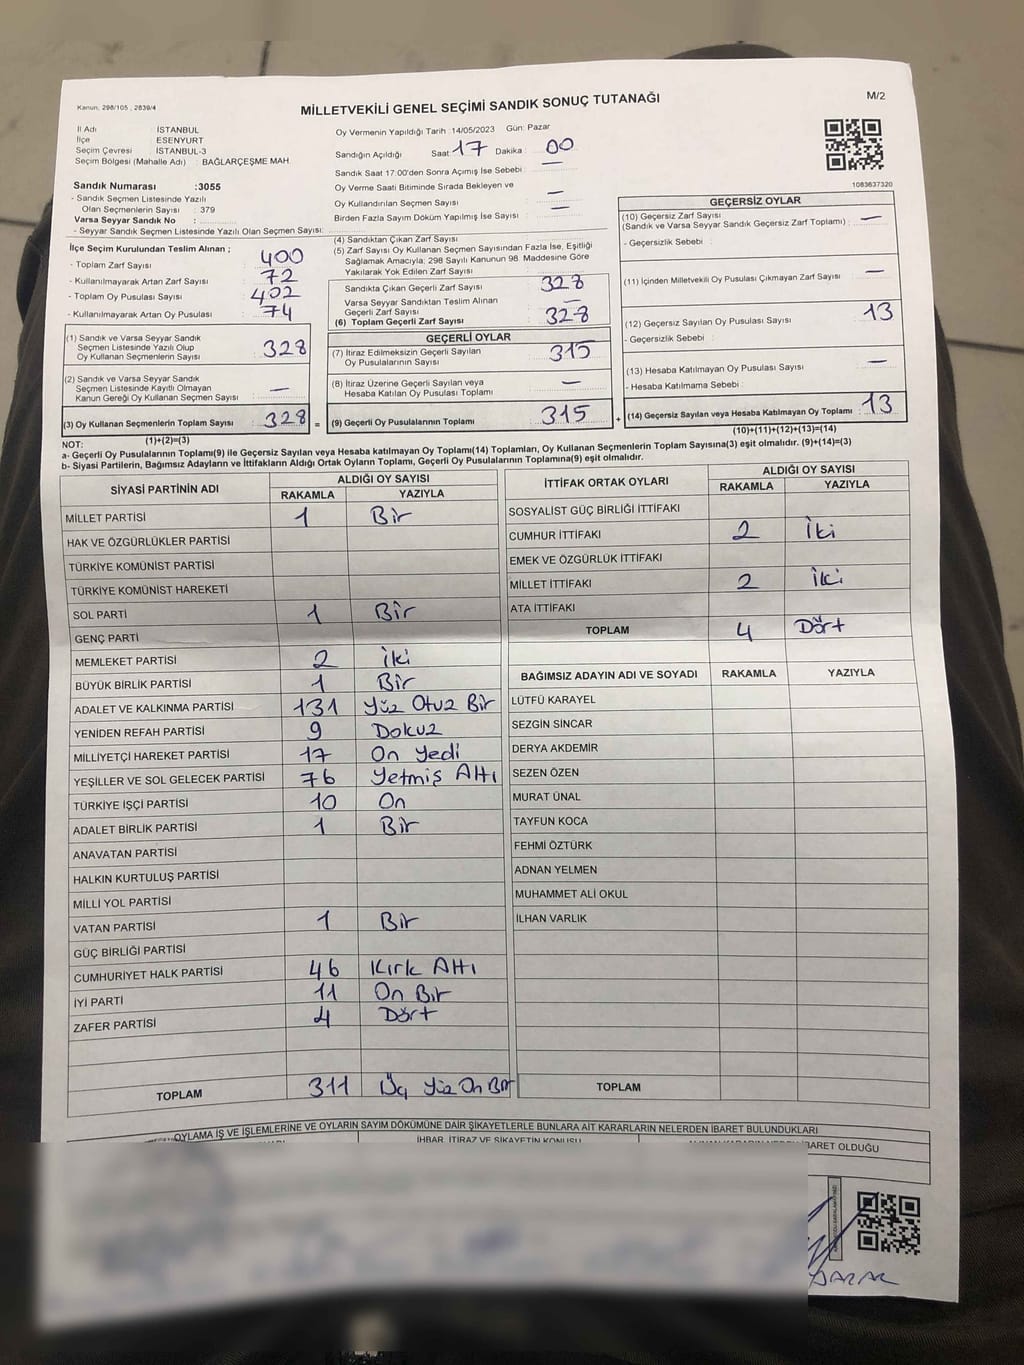 Kanun; 298/105 , 2839/4
MİLLETVEKİLİ GENEL SEÇİMİ SANDIK SONUÇ TUTANAĞI
M/2
İl Adı : İSTANBUL
İlçe : ESENYURT
Seçim Çevresi : İSTANBUL-3
Seçim Bölgesi (Mahalle Adı) : BAĞLARÇEŞME MAH.
Oy Vermenin Yapıldığı Tarih : 14/05/2023 Gün: Pazar
Sandığın Açıldığı Saat : 17 Dakika : 00
Sandık Saat 17:00'den Sonra Açılmış İse Sebebi : —
Oy Verme Saati Bitiminde Sırada Bekleyen ve
Oy Kullandırılan Seçmen Sayısı : —
Birden Fazla Sayım Döküm Yapılmış İse Sayısı : —
1083637320
Sandık Numarası :3055
- Sandık Seçmen Listesinde Yazılı
Olan Seçmenlerin Sayısı : 379
Varsa Seyyar Sandık No :
- Seyyar Sandık Seçmen Listesinde Yazılı Olan Seçmen Sayısı:
İlçe Seçim Kurulundan Teslim Alınan ;
- Toplam Zarf Sayısı : 400
- Kullanılmayarak Artan Zarf Sayısı : 72
- Toplam Oy Pusulası Sayısı : 402
- Kullanılmayarak Artan Oy Pusulası : 74
(1) Sandık ve Varsa Seyyar Sandık
Seçmen Listesinde Yazılı Olup
Oy Kullanan Seçmenlerin Sayısı : 328
(2) Sandık ve Varsa Seyyar Sandık
Seçmen Listesinde Kayıtlı Olmayan
Kanun Gereği Oy Kullanan Seçmen Sayısı : —
(3) Oy Kullanan Seçmenlerin Toplam Sayısı : 328
(1)+(2)=(3)
(4) Sandıktan Çıkan Zarf Sayısı :
(5) Zarf Sayısı Oy Kullanan Seçmen Sayısından Fazla İse, Eşitliği
Sağlamak Amacıyla; 298 Sayılı Kanunun 98. Maddesine Göre
Yakılarak Yok Edilen Zarf Sayısı :
Sandıkta Çıkan Geçerli Zarf Sayısı : 328
Varsa Seyyar Sandıktan Teslim Alınan
Geçerli Zarf Sayısı : —
(6) Toplam Geçerli Zarf Sayısı : 328
GEÇERLİ OYLAR
(7) İtiraz Edilmeksizin Geçerli Sayılan
Oy Pusulalarının Sayısı : 315
(8) İtiraz Üzerine Geçerli Sayılan veya
Hesaba Katılan Oy Pusulası Toplamı : —
= (9) Geçerli Oy Pusulalarının Toplamı : 315 +
GEÇERSİZ OYLAR
(10) Geçersiz Zarf Sayısı
(Sandık ve Varsa Seyyar Sandık Geçersiz Zarf Toplamı) : —
- Geçersizlik Sebebi :
(11) İçinden Milletvekili Oy Pusulası Çıkmayan Zarf Sayısı : —
(12) Geçersiz Sayılan Oy Pusulası Sayısı : 13
- Geçersizlik Sebebi :
(13) Hesaba Katılmayan Oy Pusulası Sayısı : —
- Hesaba Katılmama Sebebi :
(14) Geçersiz Sayılan veya Hesaba Katılmayan Oy Toplamı : 13
(10)+(11)+(12)+(13)=(14)
NOT:
a- Geçerli Oy Pusulalarının Toplamı(9) ile Geçersiz Sayılan veya Hesaba katılmayan Oy Toplamı(14) Toplamları, Oy Kullanan Seçmenlerin Toplam Sayısına(3) eşit olmalıdır. (9)+(14)=(3)
b- Siyasi Partilerin, Bağımsız Adayların ve İttifakların Aldığı Ortak Oyların Toplamı, Geçerli Oy Pusulalarının Toplamına(9) eşit olmalıdır.
SİYASİ PARTİNİN ADI ALDIĞI OY SAYISI
RAKAMLA YAZIYLA
MİLLET PARTİSİ 1 Bir
HAK VE ÖZGÜRLÜKLER PARTİSİ
TÜRKİYE KOMÜNİST PARTİSİ
TÜRKİYE KOMÜNİST HAREKETİ
SOL PARTİ 1 Bir
GENÇ PARTİ
MEMLEKET PARTİSİ 2 İki
BÜYÜK BİRLİK PARTİSİ 1 Bir
ADALET VE KALKINMA PARTİSİ 131 Yüz Otuz Bir
YENİDEN REFAH PARTİSİ 9 Dokuz
MİLLİYETÇİ HAREKET PARTİSİ 17 On Yedi
YEŞİLLER VE SOL GELECEK PARTİSİ 76 Yetmiş Altı
TÜRKİYE İŞÇİ PARTİSİ 10 On
ADALET BİRLİK PARTİSİ 1 Bir
ANAVATAN PARTİSİ
HALKIN KURTULUŞ PARTİSİ
MİLLİ YOL PARTİSİ
VATAN PARTİSİ 1 Bir
GÜÇ BİRLİĞİ PARTİSİ
CUMHURİYET HALK PARTİSİ 46 Kırk Altı
İYİ PARTİ 11 On Bir
ZAFER PARTİSİ 4 Dört
TOPLAM 311 Üç Yüz On Bir
İTTİFAK ORTAK OYLARI ALDIĞI OY SAYISI
RAKAMLA YAZIYLA
SOSYALİST GÜÇ BİRLİĞİ İTTİFAKI
CUMHUR İTTİFAKI 2 İki
EMEK VE ÖZGÜRLÜK İTTİFAKI
MİLLET İTTİFAKI 2 İki
ATA İTTİFAKI
TOPLAM 4 Dört
BAĞIMSIZ ADAYIN ADI VE SOYADI RAKAMLA YAZIYLA
LÜTFÜ KARAYEL
SEZGİN SİNCAR
DERYA AKDEMİR
SEZEN ÖZEN
MURAT ÜNAL
TAYFUN KOCA
FEHMİ ÖZTÜRK
ADNAN YELMEN
MUHAMMET ALİ OKUL
İLHAN VARLIK
TOPLAM
OYLAMA İŞ VE İŞLEMLERİNE VE OYLARIN SAYIM DÖKÜMÜNE DAİR ŞİKAYETLERLE BUNLARA AİT KARARLARIN NELERDEN İBARET BULUNDUKLARI
İHBAR, İTİRAZ VE ŞİKAYETİN KONUSU
İBARET OLDUĞU